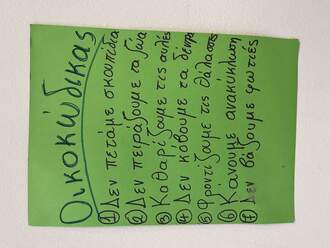 Οικοκώδικας
① Δεν πετάμε σκουπίδια
② Δεν πειράζουμε τα ζώα
③ Καθαρίζουμε τις αυλές
④ Δεν κόβουμε τα δέντρα
⑤ Φροντίζουμε τις θάλασσες
⑥ Κάνουμε ανακύκλωση
⑦ Δεν βάζουμε φωτιές